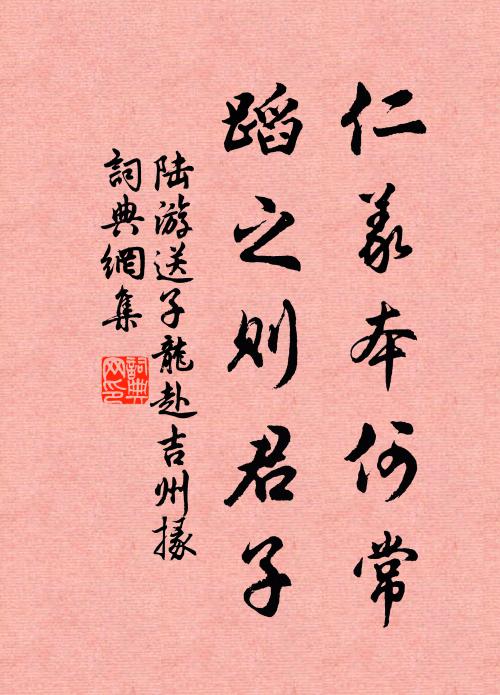 仁義本何常
蹈之則君子
陆游送子龍赴吉州掾
詞典網集
詞典網印